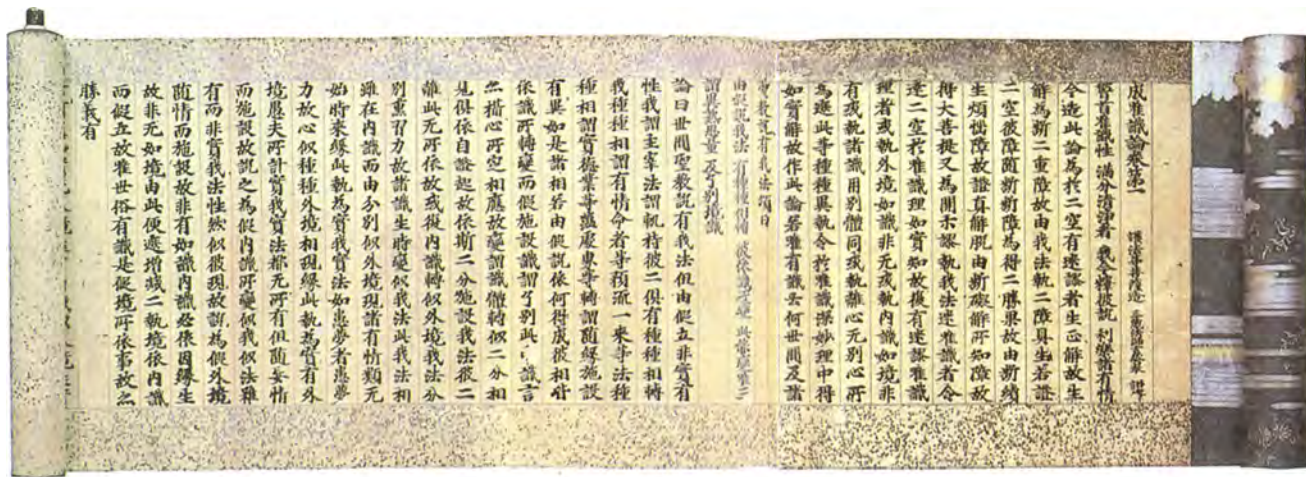 成唯識論卷第一 護法等菩薩造 三藏法師玄奘 譯
稽首唯識性 滿分清淨者 我今釋彼說 利樂諸有情
今造此論為於二空有迷謬者生正解故生
解為斷二重障故由我法執二障具生若證
二空彼障隨斷斷障為得二勝果故由斷續
生煩惱障故證真解脫由斷礙解所知障故
得大菩提又為開示謬執我法迷唯識者令
達二空於唯識理如實知故復有迷謬唯識
理者或執外境如識非无或執內識如境非
有或執諸識用別體同或執離心无別心所
為遮此等種種異執令於唯識深妙理中得
如實解故作此論若唯有識云何世間及諸
聖教說有我法頌曰
由假說我法 有種種相轉 彼依識所變 此能變唯三
謂異熟思量 及了別境識
論曰世間聖教說有我法但由假立非實有
性我謂主宰法謂軌持彼二俱有種種相轉
我種種相謂有情命者等預流一來等法種
種相謂實德業等蘊處界等轉謂隨緣施設
有異如是諸相若由假說依何得成彼相皆
依識所轉變而假施設識謂了別此中識言
亦攝心所定相應故變謂識體轉似二分相
見俱依自證起故依斯二分施設我法彼二
離此无所依故或復內識轉似外境我法分
別熏習力故諸識生時變似我法此我法相
雖在內識而由分別似外境現諸有情類无
始時來緣此執為實我實法如患夢者患夢
力故心似種種外境相現緣此執為實有外
境愚夫所計實我實法都无所有但隨妄情
而施設故說之為假內識所變似我似法雖
有而非實我法性然似彼現故說為假外境
隨情而施設故非有如識內識必依因緣生
故非无如境由此便遮增減二執境依內識
而假立故唯世俗有識是假境所依事故亦
勝義有